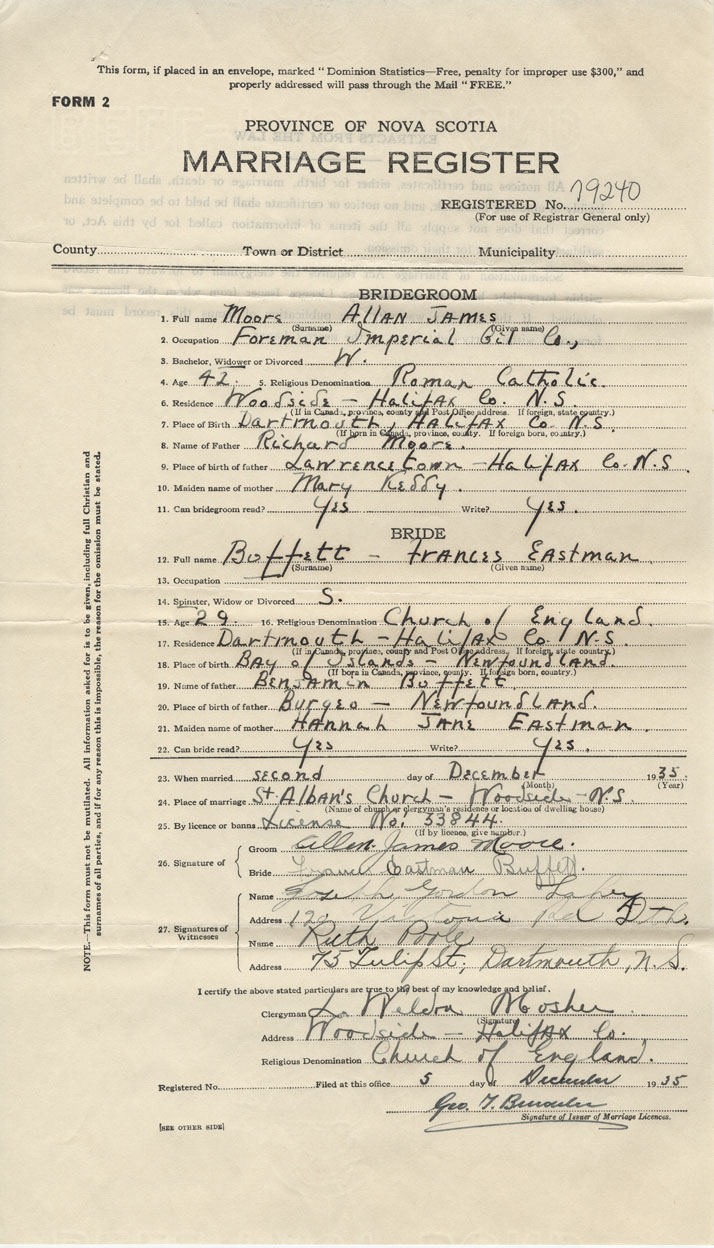 This form, if placed in an envelope, marked "Dominion Statistics—Free, penalty for improper use $300," and
properly addressed will pass through the Mail "FREE."
FORM 2
PROVINCE OF NOVA SCOTIA
MARRIAGE REGISTER
REGISTERED No. 79240
(For use of Registrar General only)
County Town or District Municipality
BRIDEGROOM
1. Full name Moore Allan James
(Surname) (Given name)
2. Occupation Foreman Imperial Oil Co.,
3. Bachelor, Widower or Divorced W.
4. Age 42. 5. Religious Denomination Roman Catholic.
6. Residence Woodside – Halifax Co. N.S.
(If in Canada, province, county and Post Office address. If foreign, state country.)
7. Place of Birth Dartmouth, Halifax Co. N.S.
(If born in Canada, province, county. If foreign born, country.)
8. Name of Father Richard Moore.
9. Place of birth of father Lawrencetown – Halifax Co. N.S.
10. Maiden name of mother Mary Keddy.
11. Can bridegroom read? Yes Write? Yes.
BRIDE
12. Full name Buffett – Frances Eastman
(Surname) (Given name)
13. Occupation
14. Spinster, Widow or Divorced S.
15. Age 29. 16. Religious Denomination Church of England.
17. Residence Dartmouth – Halifax Co. N.S.
(If in Canada, province, county and Post Office address. If foreign, state country.)
18. Place of birth Bay of Islands – Newfoundland.
(If born in Canada, province, county. If foreign born, country.)
19. Name of father Benjamen Buffett.
20. Place of birth of father Burgeo – Newfoundland.
21. Maiden name of mother Hannah Jane Eastman.
22. Can bride read? Yes Write? Yes.
23. When married second day of December 1935.
(Month) (Year)
24. Place of marriage St Alban's Church – Woodside – N.S.
(Name of church or clergyman's residence or location of dwelling house)
25. By licence or banns License No. 33844.
(If by licence, give number.)
26. Signature of
Groom Allen James Moore.
Bride Eastman Buffett.
27. Signatures of Witnesses
Name Joseph Gordon
Address Rd Dth.
Name Ruth Poole
Address 75 Tulip St., Dartmouth, N.S.
I certify the above stated particulars are true to the best of my knowledge and belief.
Clergyman Weldon Mosher
(Signature)
Address Woodside – Halifax Co.
Religious Denomination Church of England.
Registered No. Filed at this office 5 day of December 1935
Geo. T.
Signature of Issuer of Marriage Licences.
[SEE OTHER SIDE]
NOTE.—This form must not be mutilated. All information asked for is to be given, including full Christian and
surnames of all parties, and if for any reason this is impossible, the reason for the omission must be stated.